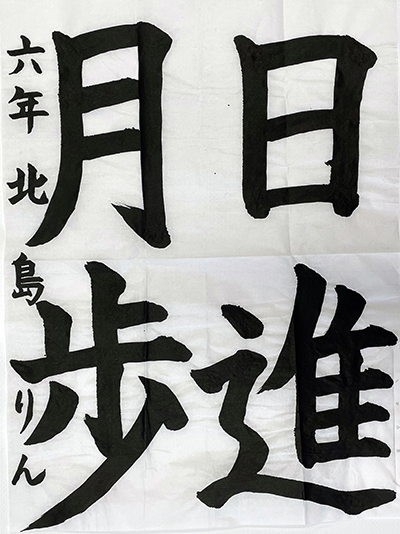 日進
月歩
六年 北島りん